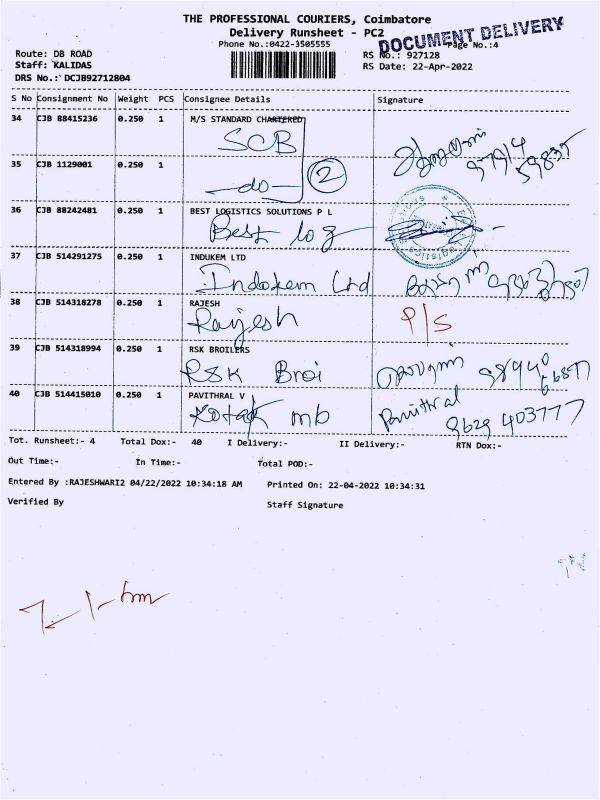 THE PROFESSIONAL COURIERS, Coimbatore
Delivery Runsheet - PC2
DOCUMENT DELIVERY
Phone No.:0422-3505555
Page No.:4
Route: DB ROAD
RS No.: 927128
Staff: KALIDAS
RS Date: 22-Apr-2022
DRS No.: DCJB92712804
S No Consignment No Weight PCS Consignee Details Signature
34 CJB 88415236 0.250 1 M/S STANDARD CHARTERED
SCB
35 CJB 1129001 0.250 1
-do- 2
36 CJB 88242481 0.250 1 BEST LOGISTICS SOLUTIONS P L
Best log
37 CJB 514291275 0.250 1 INDUKEM LTD
Indokem Ltd
38 CJB 514318278 0.250 1 RAJESH
Rajesh P/S
39 CJB 514318994 0.250 1 RSK BROILERS
RSK Broi 98940
40 CJB 514415010 0.250 1 PAVITHRAL V
Kotak mb Pavithral
9629 403777
Tot. Runsheet:- 4 Total Dox:- 40 I Delivery:- II Delivery:- RTN Dox:-
Out Time:- In Time:- Total POD:-
Entered By :RAJESHWARI2 04/22/2022 10:34:18 AM Printed On: 22-04-2022 10:34:31
Verified By Staff Signature